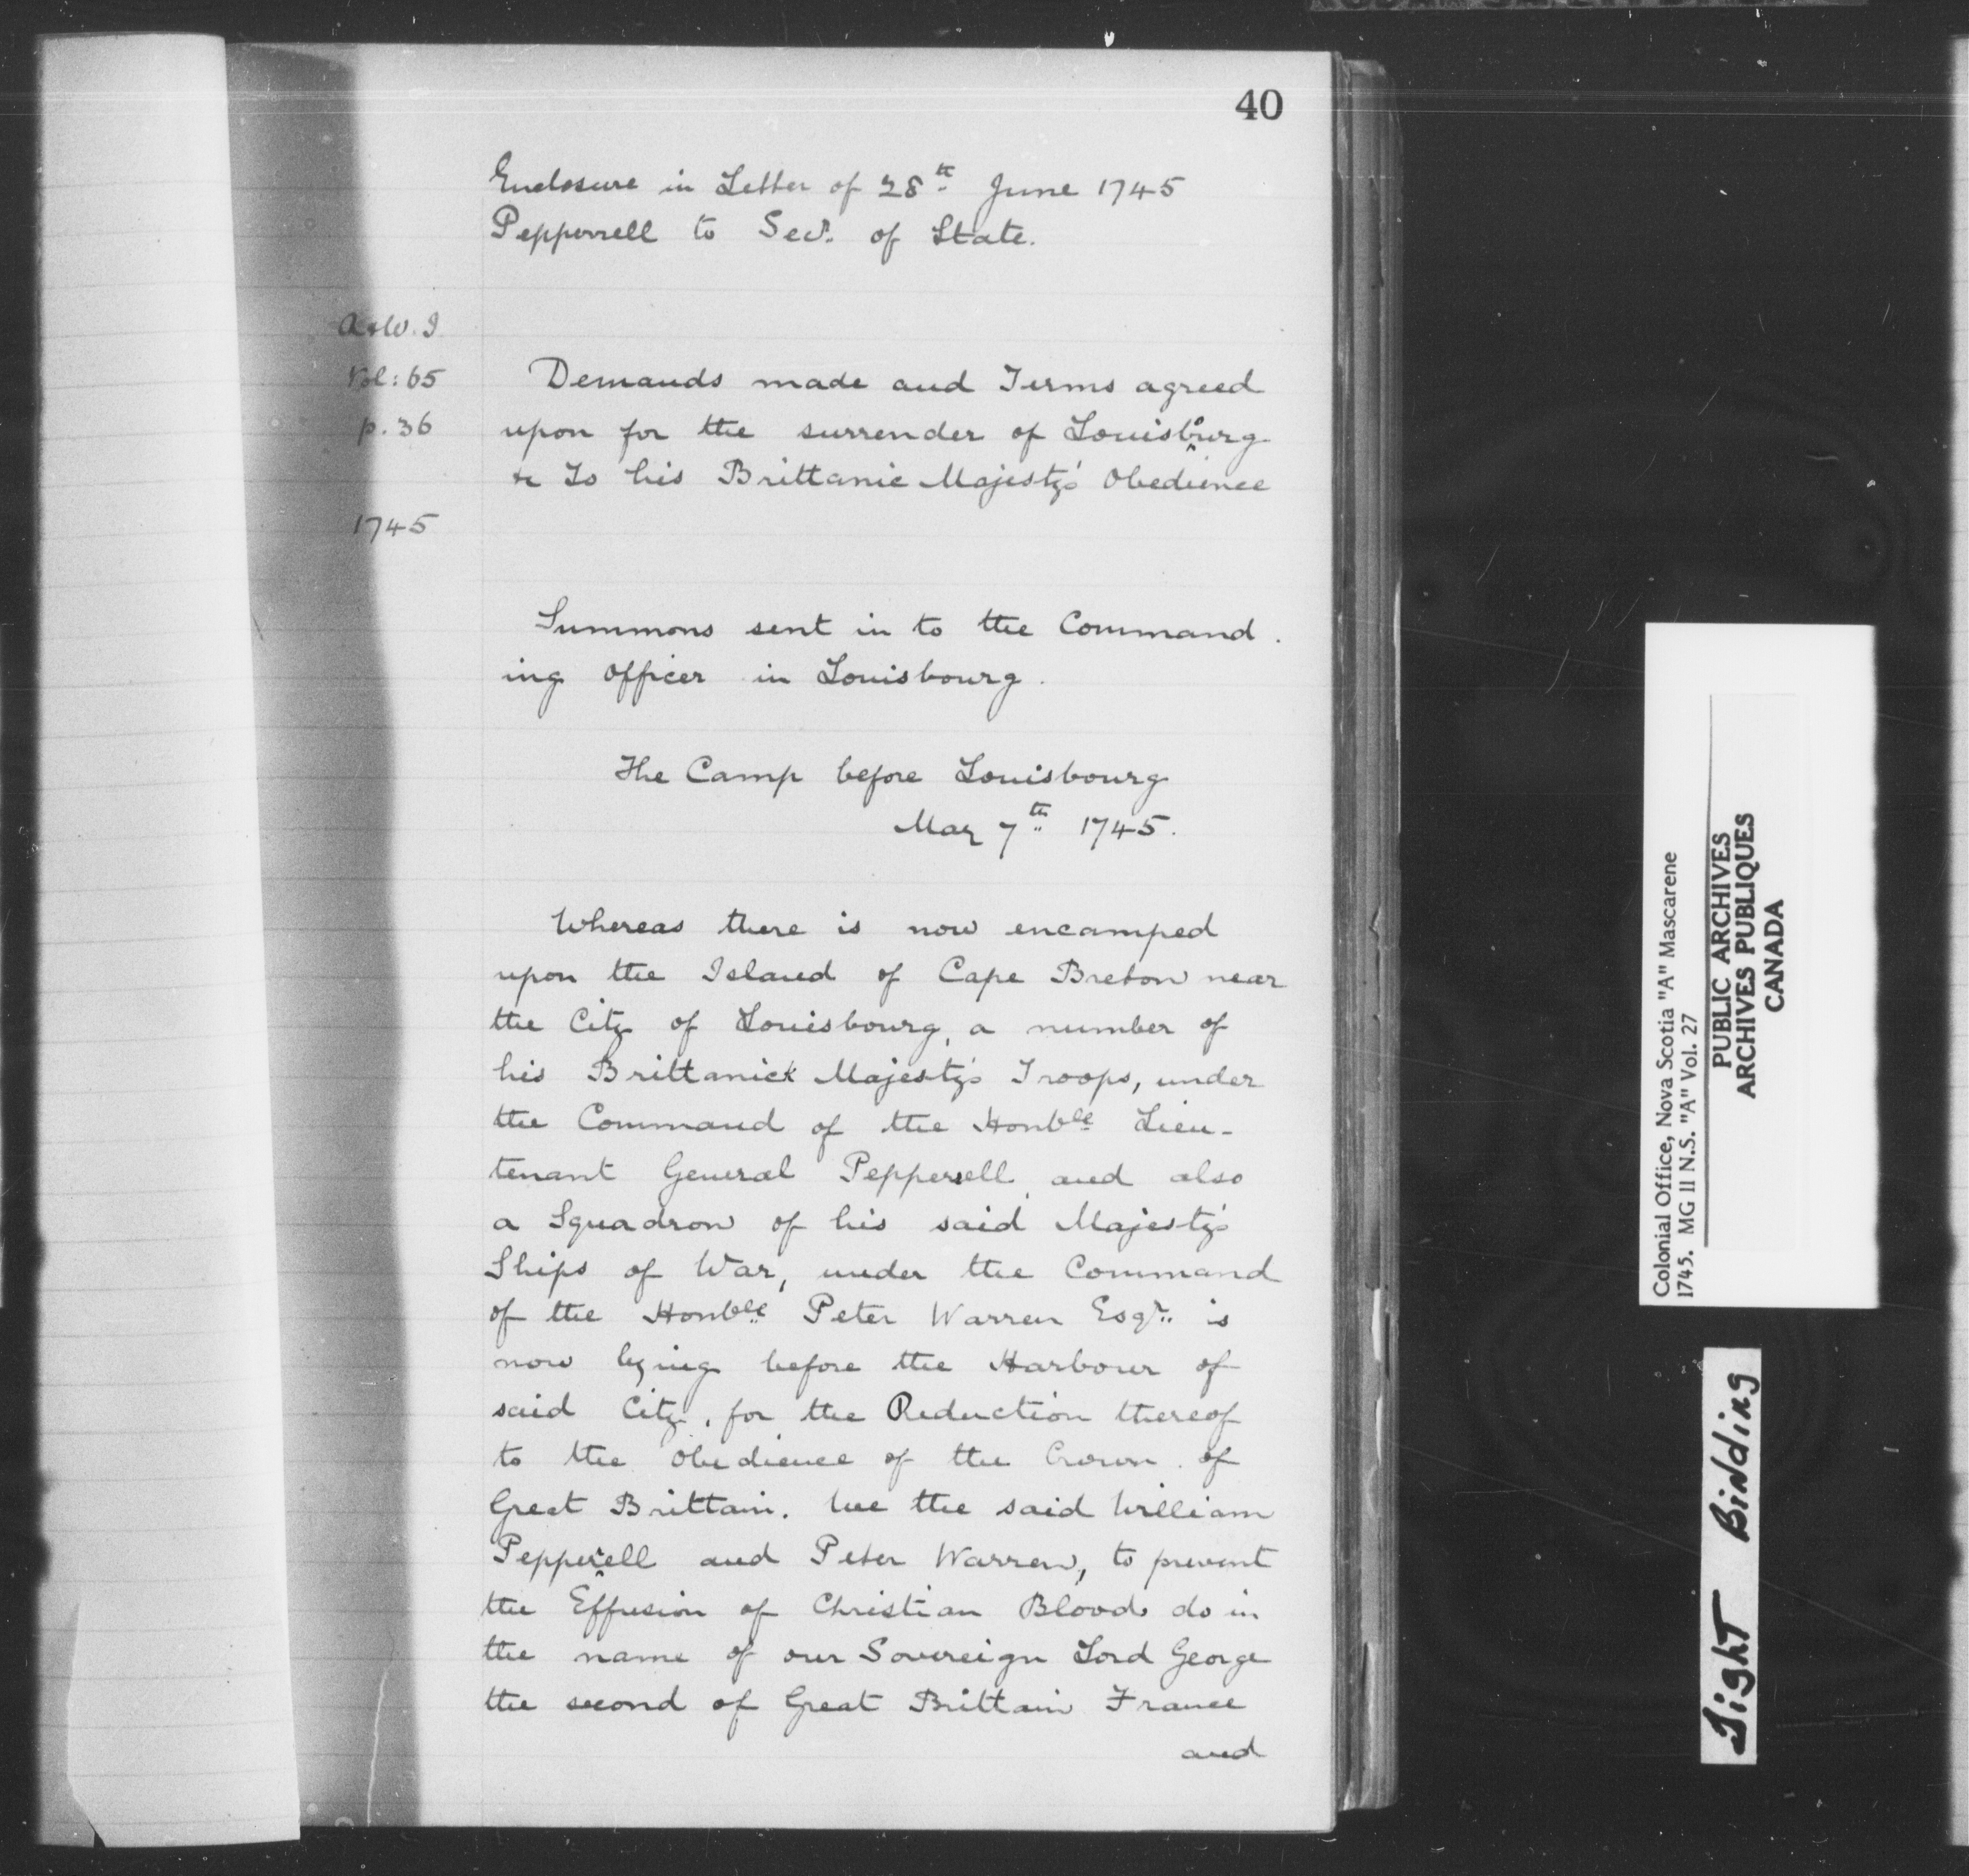 40
Enclosure in Letter of 28th June 1745
Pepperrell to Secy. of State.
A & W. I.
Vol: 65
p. 36
1745
Demands made and Terms agreed
upon for the surrender of Louisbourg
&c To his Brittanic Majesty's Obedience
Summons sent in to the Command
ing officer in Louisbourg.
The Camp before Louisbourg
May 7th 1745.
Whereas there is now encamped
upon the Island of Cape Breton near
the City of Louisbourg, a number of
his Brittanick Majesty's Troops, under
the Command of the Honble Lieu-
tenant General Pepperrell, and also
a Squadron of his said Majesty's
Ships of War, under the Command
of the Honble Peter Warren Esqr. is
now lying before the Harbour of
said City, for the Reduction thereof
to the obedience of the Crown of
Great Brittain. We the said William
Pepperrell and Peter Warren, to prevent
the Effusion of Christian Blood do in
the name of our Sovereign Lord George
the second of Great Brittain France
and
Colonial Office, Nova Scotia "A" Mascarene
1745. MG 11 N.S. "A" Vol. 27
PUBLIC ARCHIVES
ARCHIVES PUBLIQUES
CANADA
Tight Binding